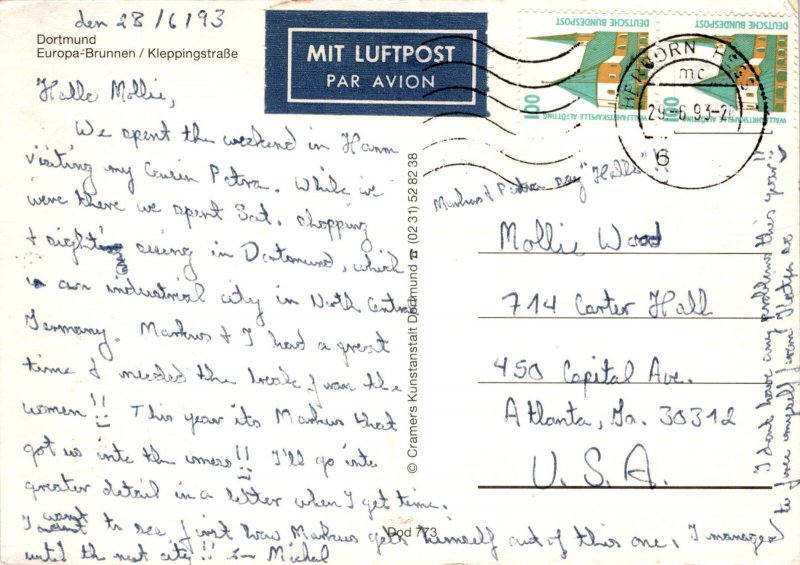 den 28/6/93
Dortmund
Europa-Brunnen / Kleppingstraße
MIT LUFTPOST
PAR AVION
DEUTSCHE BUNDESPOST
100
WALLFAHRTSKAPELLE ALTÖTTING
DEUTSCHE BUNDESPOST
100
WALLFAHRTSKAPELLE ALTÖTTING
HERBORN, HESS
mc
29.-6.93-2
6
Hallo Mollie,
We spent the weekend in Hamm
visiting my Cousin Petra. While we
were there we spent Sat. shopping
& sight seeing in Dortmund, which
is an industrial city in North Central
Germany. Markus & I had a great
time & needed the break from the
women!! This year its Markus that
got us into the mess!! I'll go into
greater detail in a letter when I get time.
I want to see first how Markus gets himself out of this one. I managed
until the next city!! Michal
Markus & Petra say "Hallo"!!
Mollie Wood
714 Carter Hall
450 Capital Ave.
Atlanta, Ga. 30312
U.S.A.
I dont have any problems this year!!
to free myself from Katja
© Cramers Kunstanstalt Dortmund ☎ (02 31) 52 82 38
Dod 773